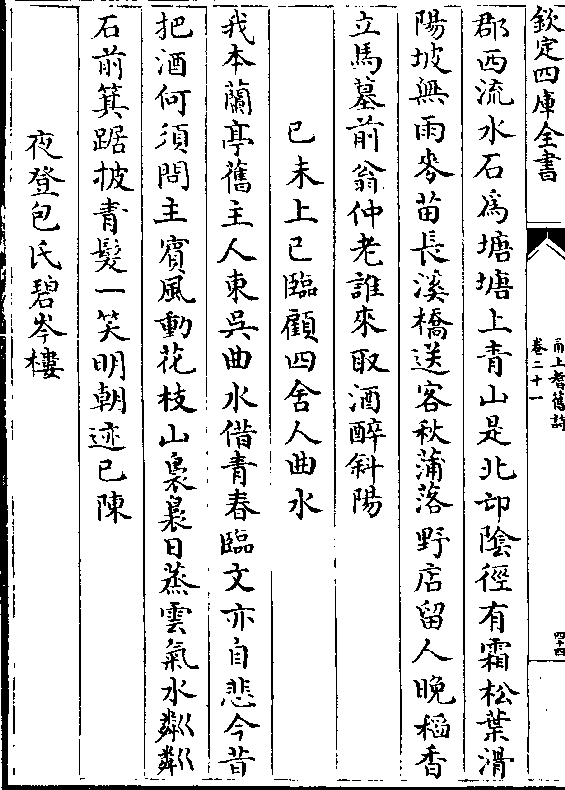 欽定四庫全書
甬上耆舊詩
卷二十一
四十四
郡西流水石為塘塘上青山是北邙陰徑有霜松葉滑
陽坡無雨麥苗長溪橋送客秋蒲落野店留人晚稻香
立馬墓前翁仲老誰來取酒醉斜陽
己未上巳臨顧四舍人曲水
我本蘭亭舊主人東吳曲水借青春臨文亦自悲今昔
把酒何須問主賓風動花枝山裊裊日蒸雲氣水粼粼
石前箕踞披青髮一笑明朝迹已陳
夜登包氏碧岑樓